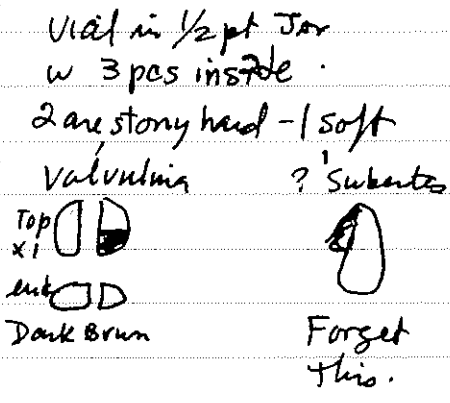 Vial in 1/2 pt Jar
w 3 pcs inside.
2 are stony hard - 1 soft
Valvulina ? Suberites
Top
x1
end
Dark Brown
Forget
this.